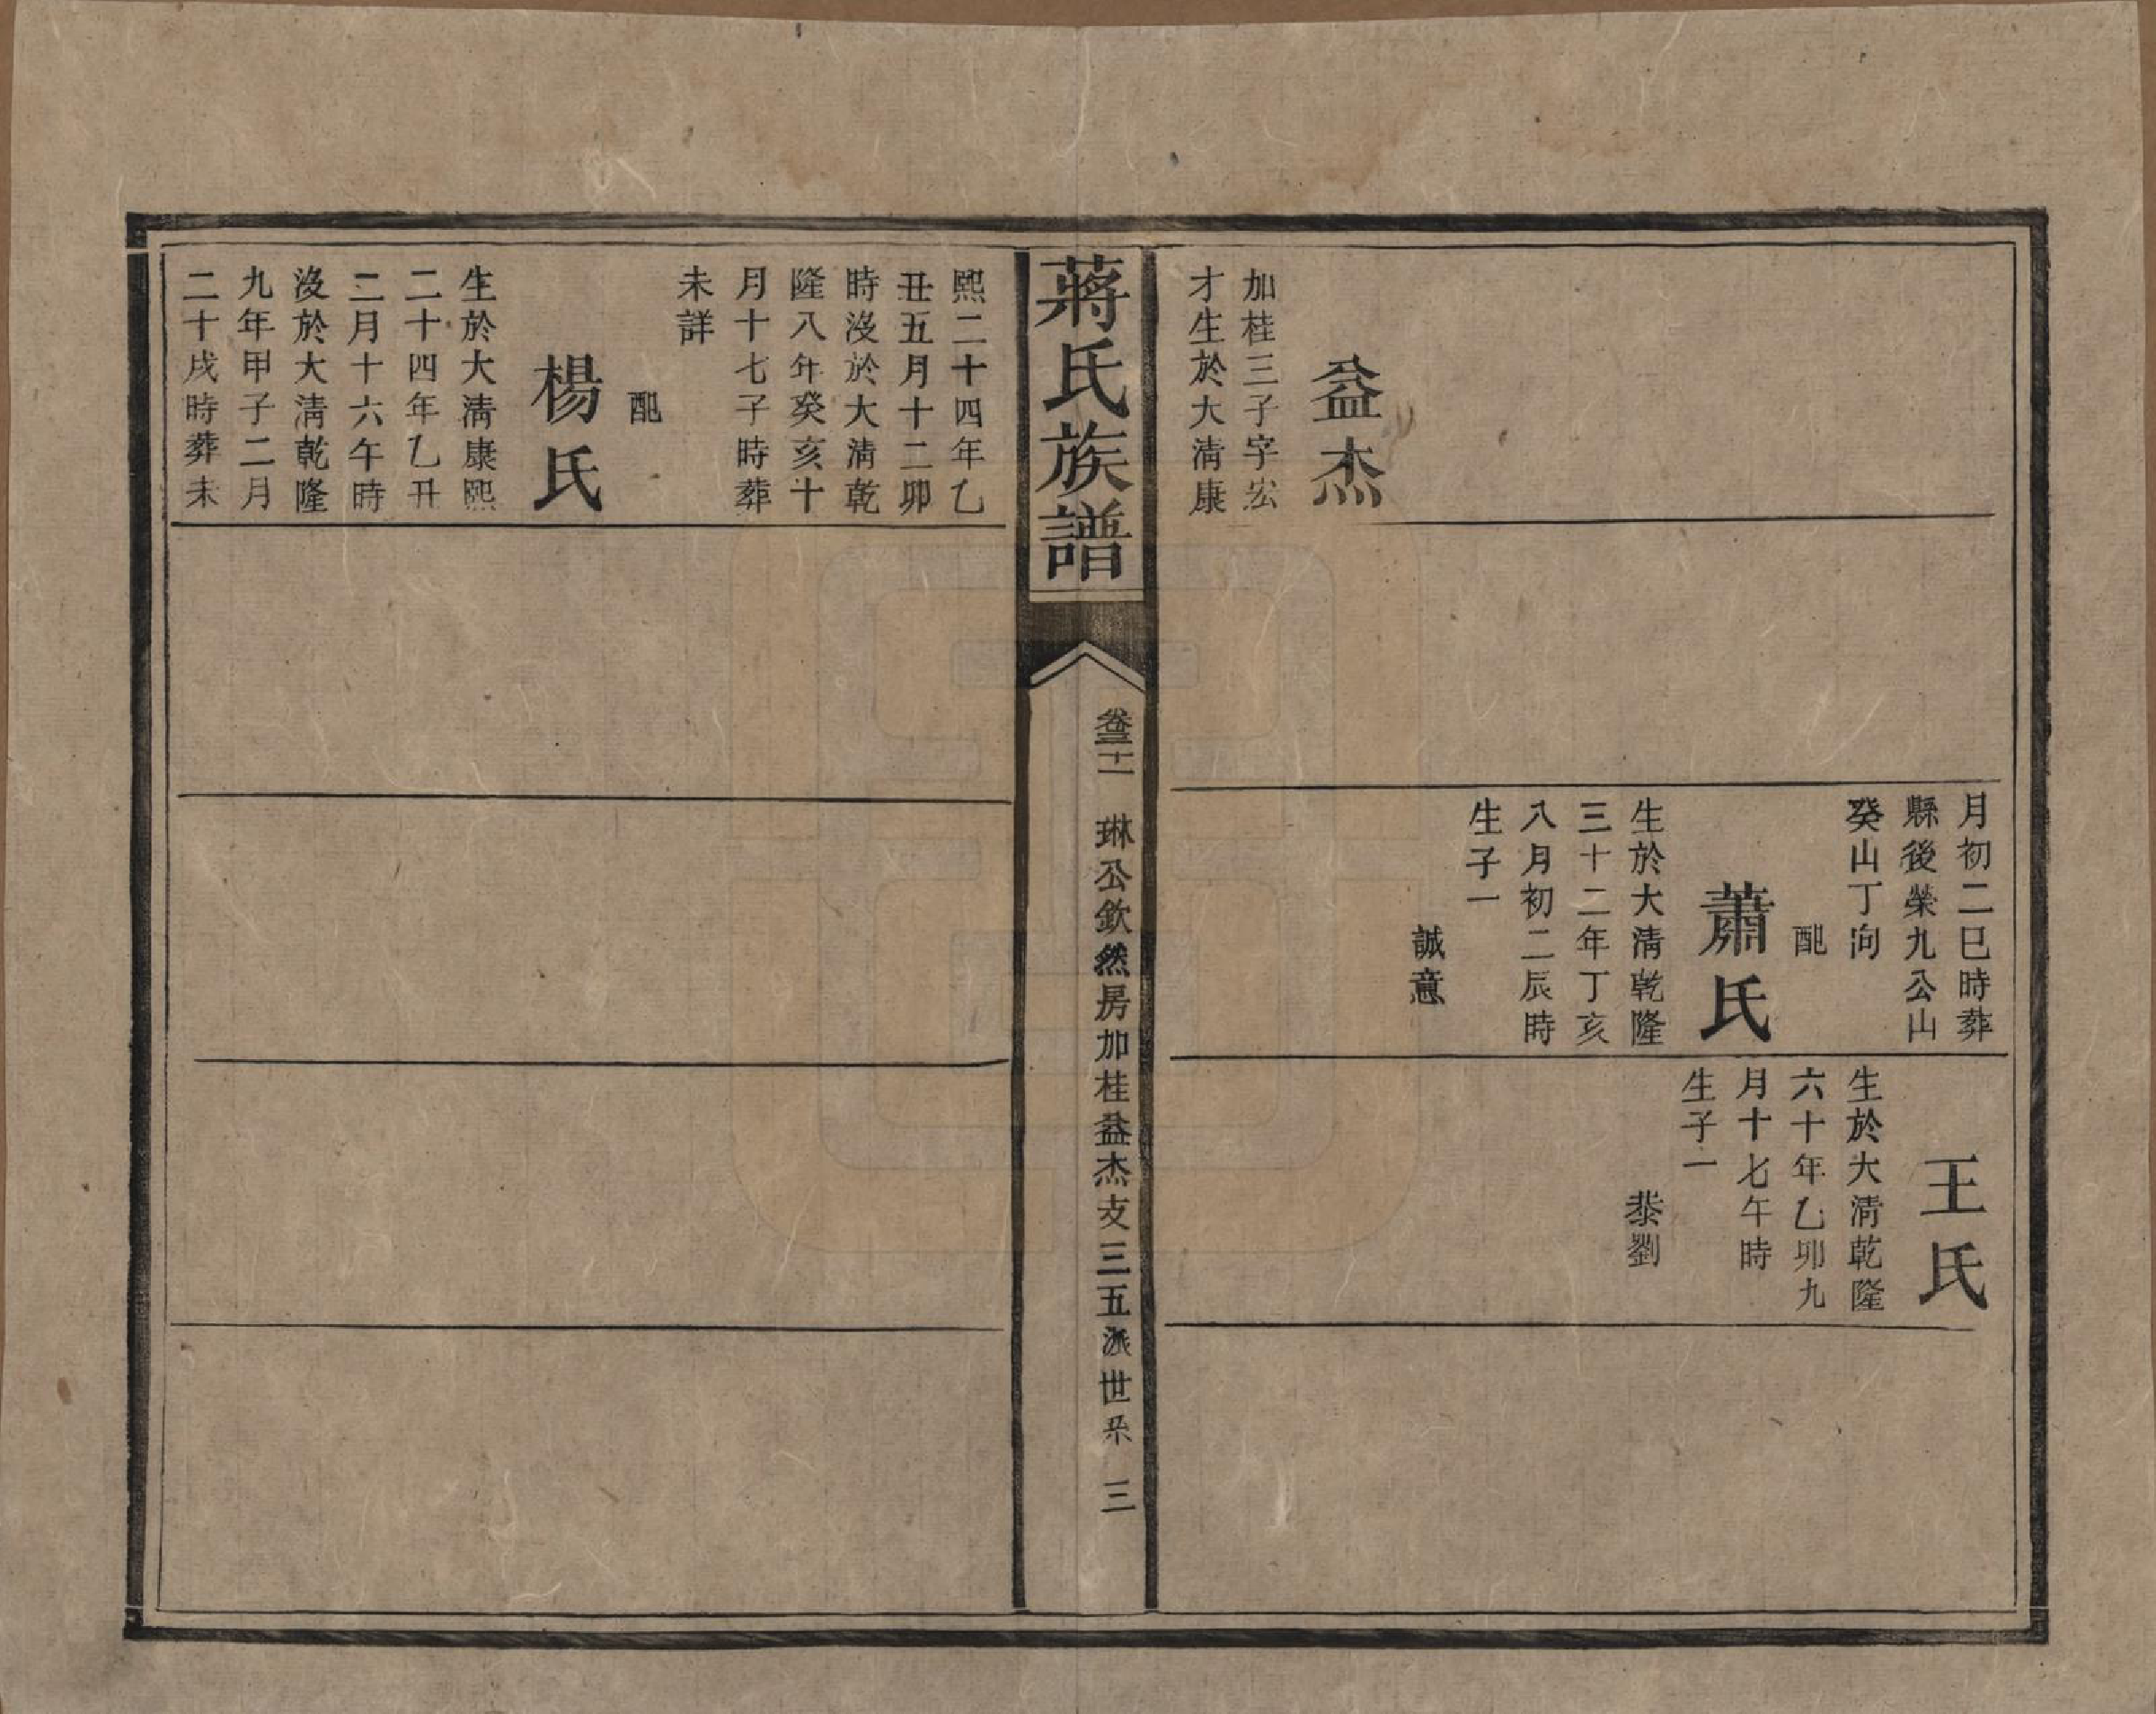 益杰
加桂三子字宏
才生於大清康
月初二巳時葬
縣後榮九公山
癸山丁向
配
蕭氏
生於大清乾隆
三十二年丁亥
八月初二辰時
生子一
誠意
王氏
生於大清乾隆
六十年乙卯九
月十七午時
生子一
恭劉
蔣氏族譜
卷三十二 琳公欽然房加桂益杰支三五派世系 三
熙二十四年乙
丑五月十二卯
時沒於大清乾
隆八年癸亥十
月十七子時葬
未詳
配
楊氏
生於大清康熙
二十四年乙丑
二月十六午時
沒於大清乾隆
九年甲子二月
二十戌時葬未